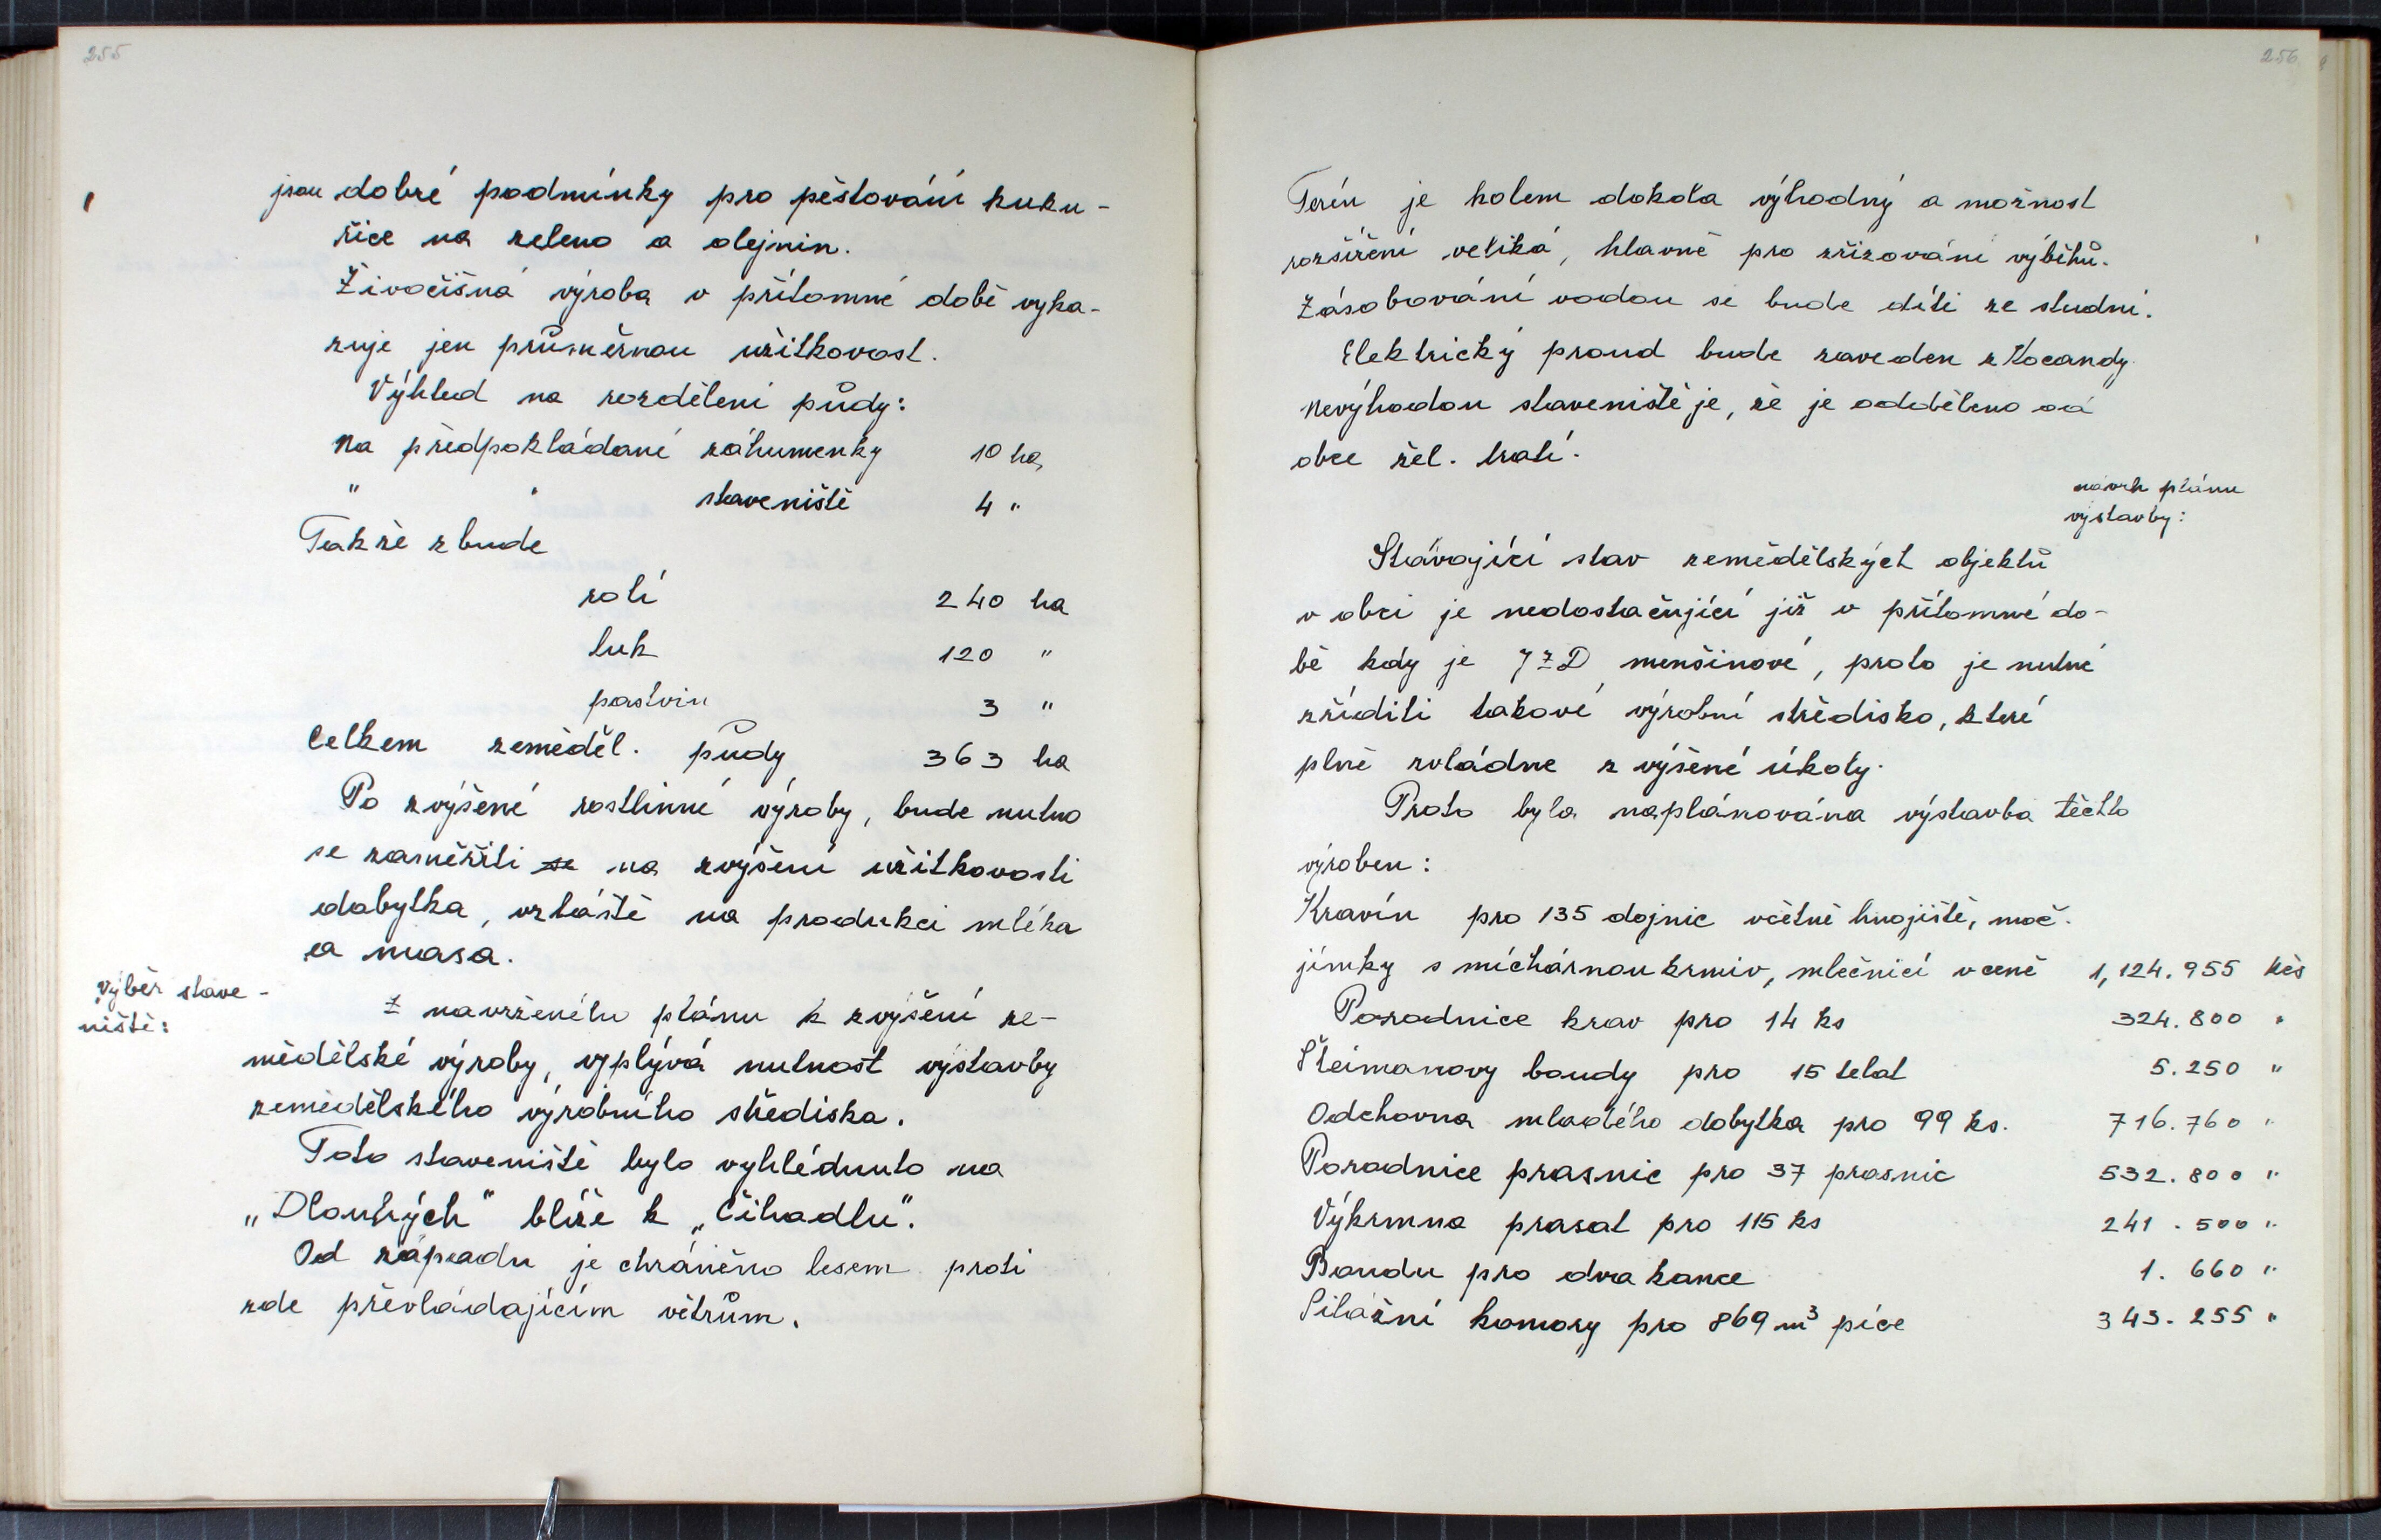 255
jsou dobré podmínky pro pěstování kuku-
řice na zeleno a olejnin.
Živočišná výroba v přítomné době vyka-
zuje jen průměrnou užitkovost.
Výhled na rozdělení půdy:
Na předpokládané záhumenky 10 ha
" " staveniště 4 "
Takže zbude
rolí 240 ha
luk 120 "
pastvin 3 "
Celkem zeměděl. půdy 363 ha
Po zvýšené rostlinné výroby, bude nutno
se zaměřiti se na zvýšení užitkovosti
dobytka, vzláště na produkci mléka
a masa.
Výběr stave-
niště:
Z navrženého plánu k zvýšení ze-
mědělské výroby, vyplývá nutnost výstavby
zemědělského výrobního střediska.
Toto staveniště bylo vyhlédnuto na
„Dlouhých" blíže k „Čihadlu".
Od západu je chráněno lesem proti
zde převládajícím větrům.
256
Terén je kolem dokola výhodný a možnost
rozšíření veliká, hlavně pro zřizování výběhů.
Zásobování vodou se bude díti ze studní.
Elektrický proud bude zaveden z Kocandy.
Nevýhodou staveniště je, že je odděleno od
obce žel. tratí.
návrh plánu
výstavby:
Stávající stav zemědělských objektů
v obci je nedostačující již v přítomné do-
bě kdy je JZD menšinové, proto je nutné
zříditi takové výrobní středisko, které
plně zvládne zvýšené úkoly.
Proto byla naplánována výstavba těchto
výroben:
Kravín pro 135 dojnic včetně hnojiště, moč.
jímky s míchárnou krmiv, mlečnicí v ceně 1,124.955 Kčs
Porodnice krav pro 14 ks 324.800 "
Šteimanovy boudy pro 15 telat 5.250 "
Odchovna mladého dobytka pro 99 ks. 716.760 "
Porodnice prasnic pro 37 prasnic 532.800 "
Výkrmna prasat pro 115 ks 241.500 "
Boudu pro dva kance 1.660 "
Silážní komory pro 869 m³ píce 343.255 "